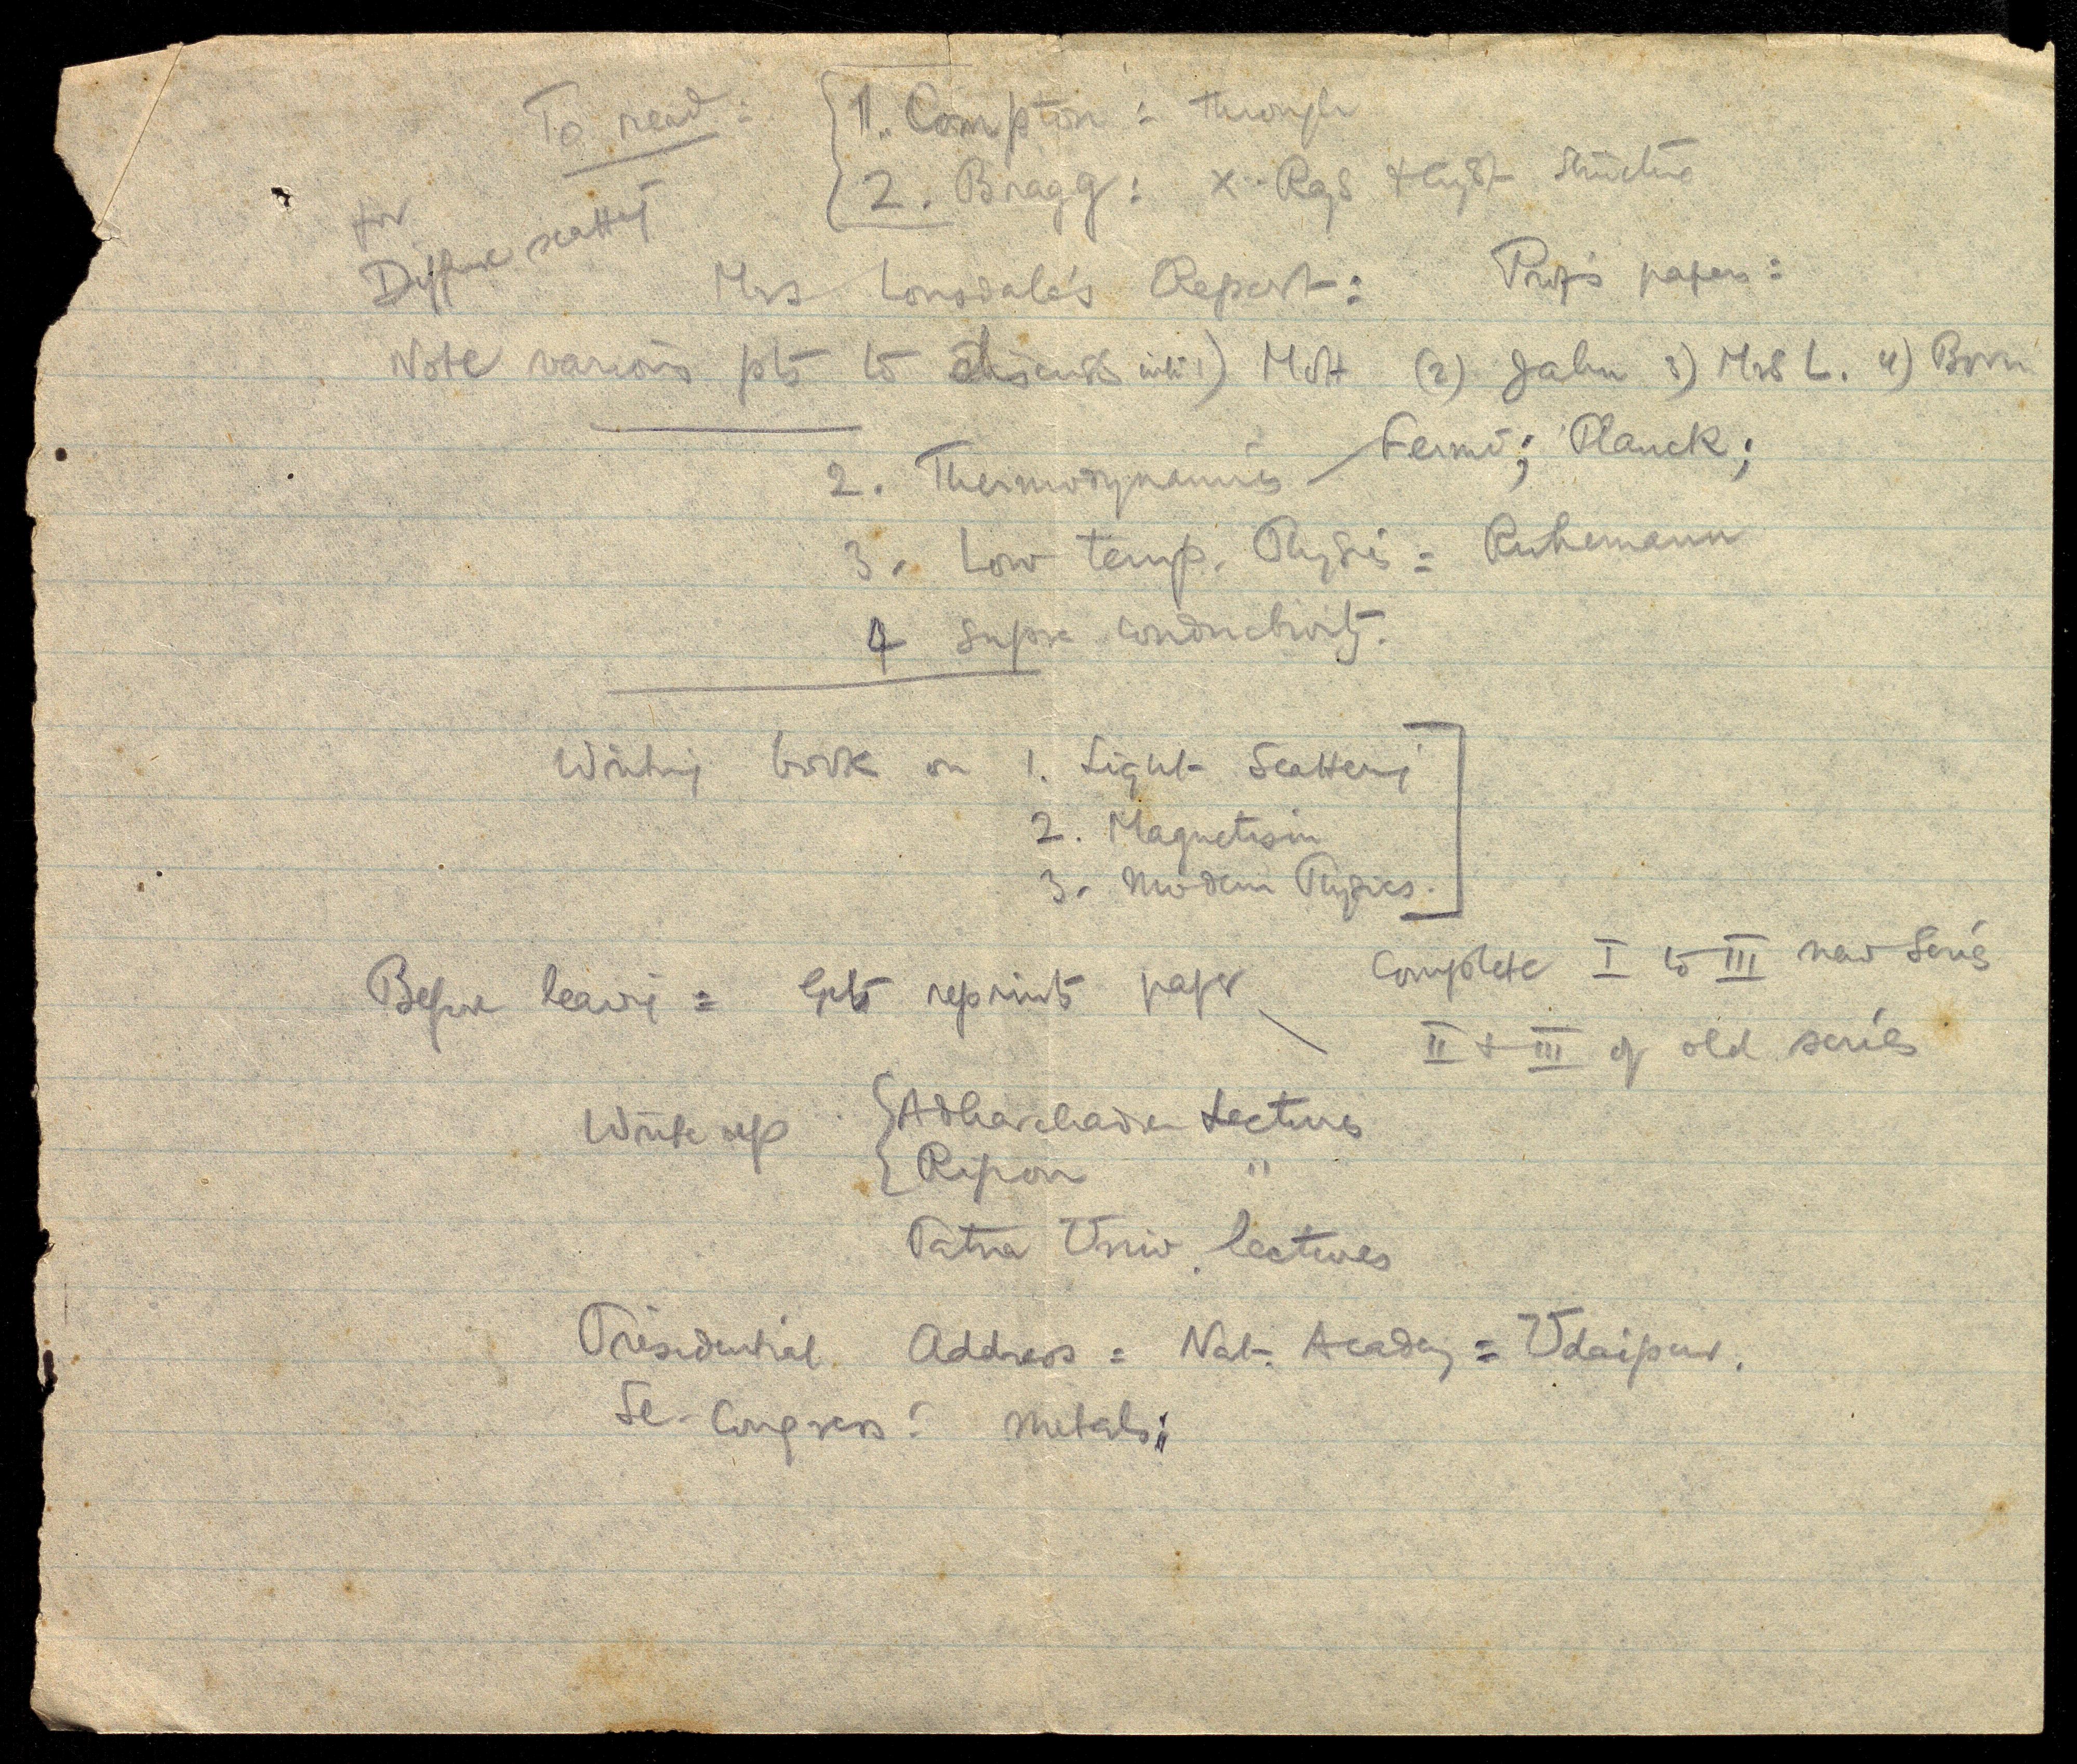 To read: 1. Compton: through
2. Bragg: X-Rays & Cryst Structure
for
Diffuse scattg
Mrs Lonsdale's Report: Prof's papers:
Note various pts to discuss with 1) Mott (2) Jahn 3) Mrs L. 4) Born
2. Thermodynamics — Fermi; Planck;
3. Low temp. Physics = Ruhemann
4 Supra conductivity.
Writing book on 1. Light Scattering
2. Magnetism
3. Modern Physics.
Before leavg = Get reprints paper Complete I to III new Series
II & III of old series
Write up Adharchandra Lectures
Ripon "
Patna Univ. lectures
Presidential Address = Nat. Academy = Udaipur.
Sc. Congress: Metals: